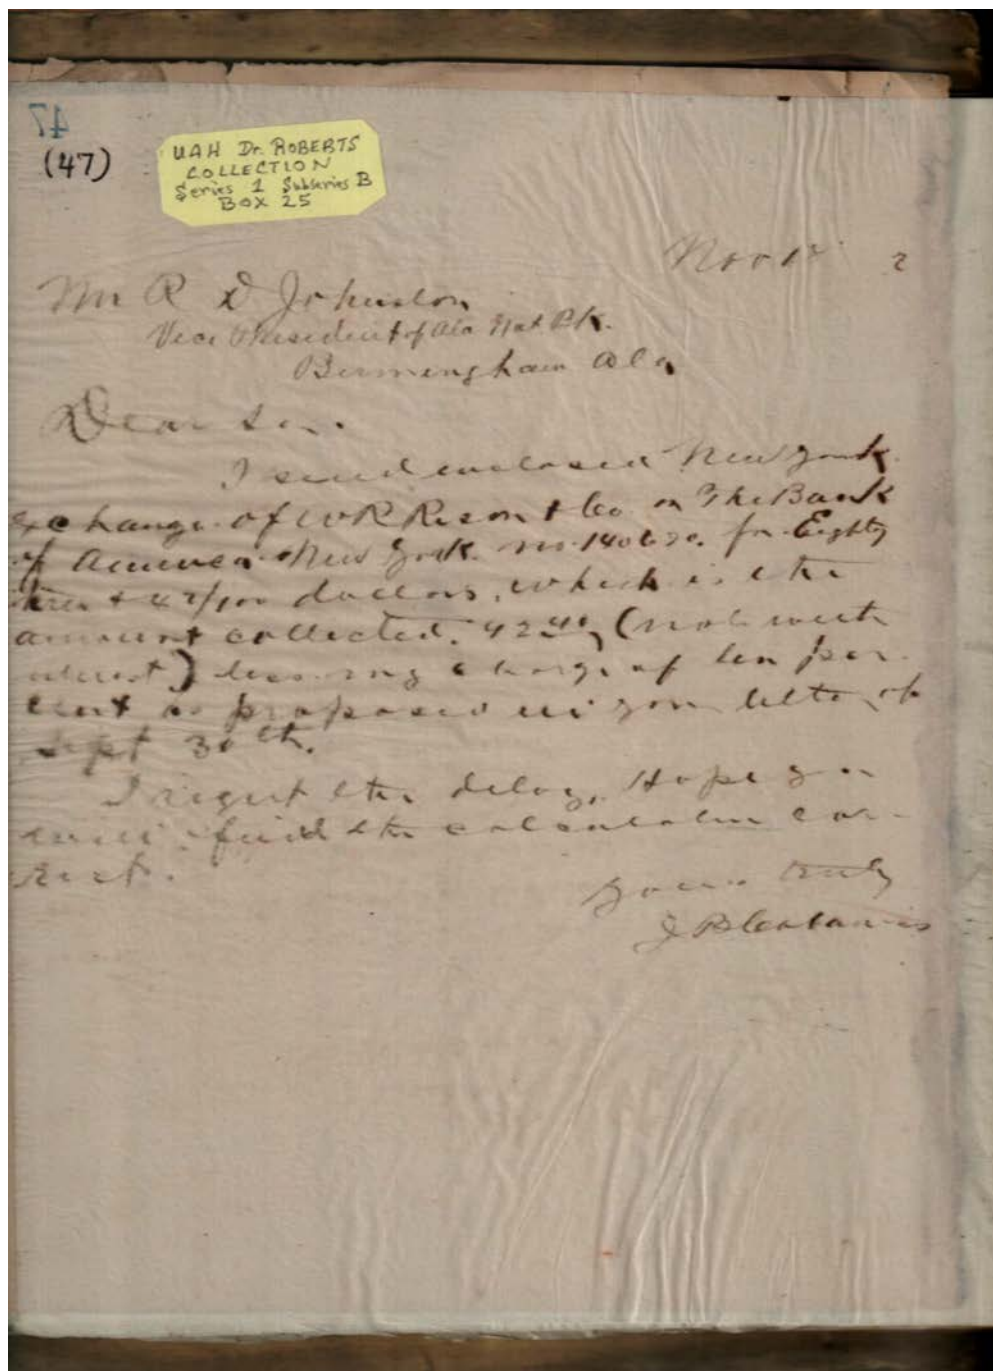 47
(47)
UAH Dr. ROBERTS
COLLECTION
Series 1 Subseries B
BOX 25
Nov 2
Mr R D Johnston
Vice President of Ala Nat Bk.
Birmingham Ala
Dear Sir.
I send enclosed New York
Exchange of W R Rison & Co on The Bank
of America New York. no. 140620. for Eighty
three & 42/100 dollars, which is the
amount collected. (not with
interest) less my charge of ten per
cent as proposed in your letter of
Sept 30th.
I regret the delay. Hope you
will find the calculation cor-
rect.
Yours truly
J B